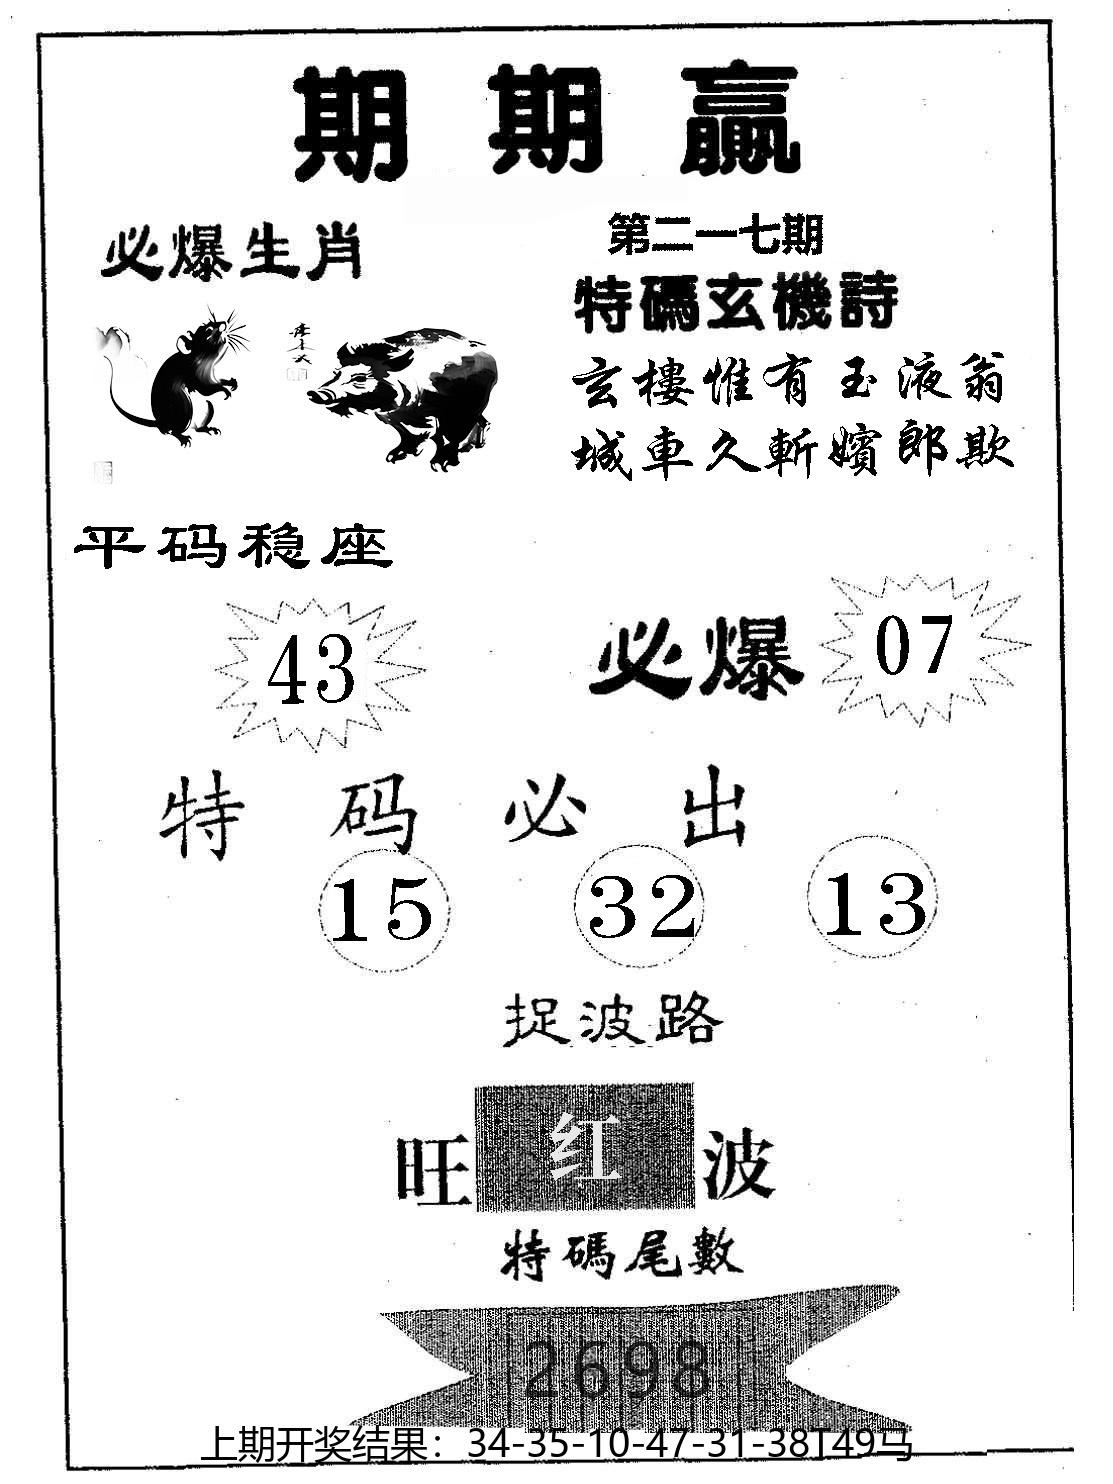 期期赢
必爆生肖
第二一七期
特碼玄機詩
玄樓惟有玉液翁
城車久斬嬪郎欺
平码稳座
43
必爆 07
特码必出
15 32 13
捉波路
旺 红 波
特碼尾數
2698
上期开奖结果：34-35-10-47-31-38T49马